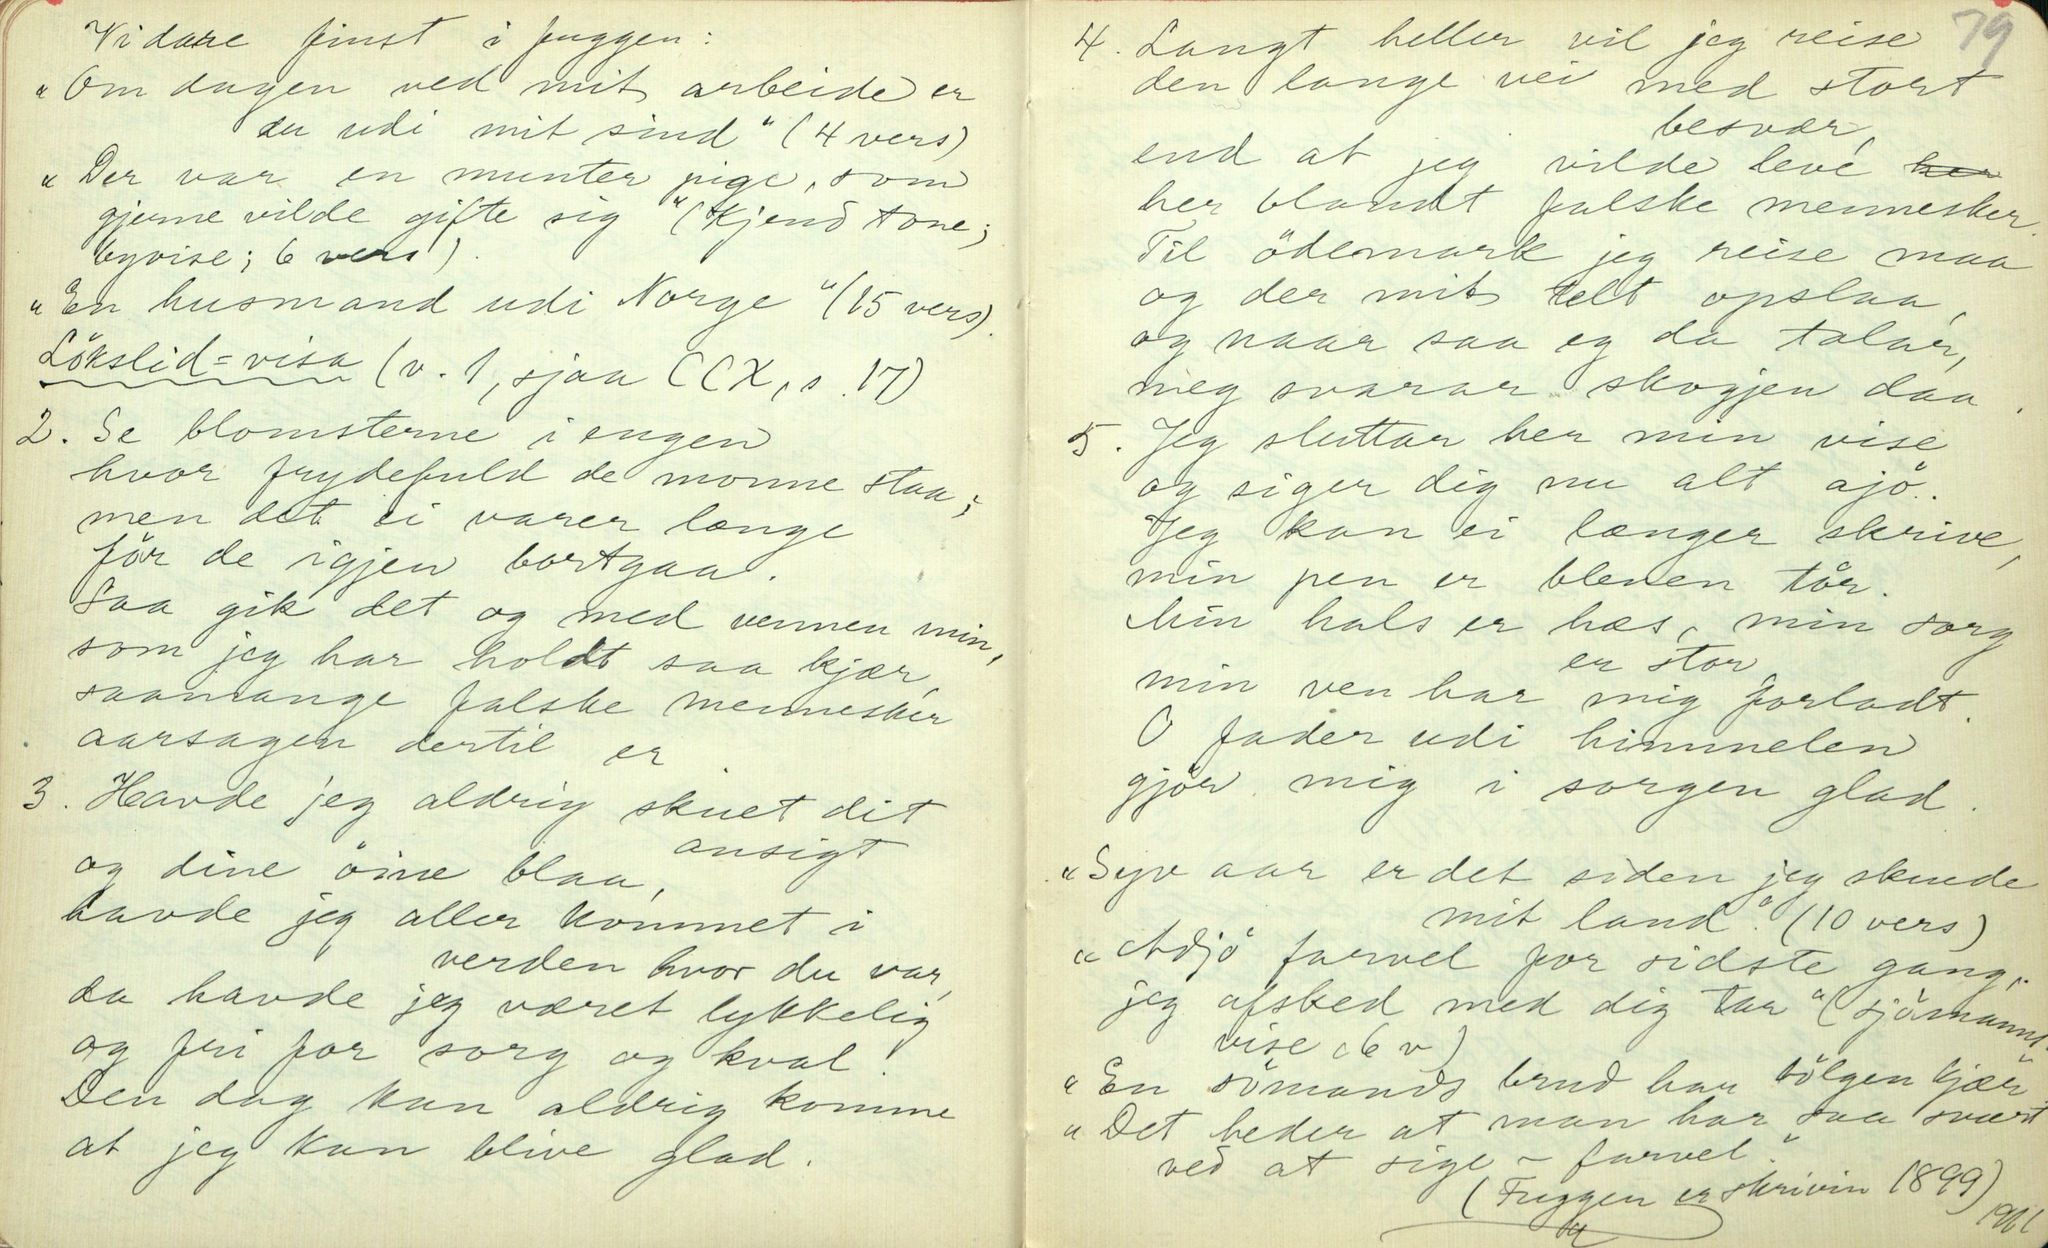 Vidare finst i fuggen:
"Om dagen ved mit arbeide er
du udi mit sind" (4 vers)
"Der var en munter pige, som
gjerne vilde gifte sig" (Kjend tone;
byvise; 6 vers).
"En husmand udi Norge" (15 vers).
Lökslid=visa (v. 1, sjaa CCX, s. 17)
2. Se blomsterne i engen
hvor frydefuld de monne staa;
men det ei varer længe
för de igjen bortgaa.
Saa gik det og med vennen min,
som jeg har holdt saa kjær,
saamange falske mennesker
aarsagen dertil er.
3. Havde jeg aldrig skuet dit
ansigt
og dine öine blaa,
havde jeg aller kommet i
verden hvor du var,
da havde jeg været lykkelig
og fri for sorg og kval.
Den dag kan aldrig komme
at jeg kan blive glad.
79
4. Langt heller vil jeg reise
den lange vei med stort
besvær,
end at jeg vilde leve her
her blandt falske mennesker.
Til ödemark jeg reise maa
og der mit telt opslaa,
og naar saa eg da talar,
meg svarar skogjen daa.
5. Jeg sluttar her min vise
og siger dig nu alt ajö.
Jeg kan ei længer skrive,
min pen er bleven tör.
Min hals er hæs, min sorg
er stor,
min ven har mig forladt.
O fader udi himmelen
gjör mig i sorgen glad.
"Syv aar er det siden jeg skuede
mit land." (10 vers)
"Adjö farvel for sidste gang,
jeg afsked med dig tar" (sjömanns-
vise (6 v)
"En sömands brud har bölgen kjær"
"Det heder at man har saa svært
ved at sige - farvel."
(Fuggen er skrivin 1899)
1911